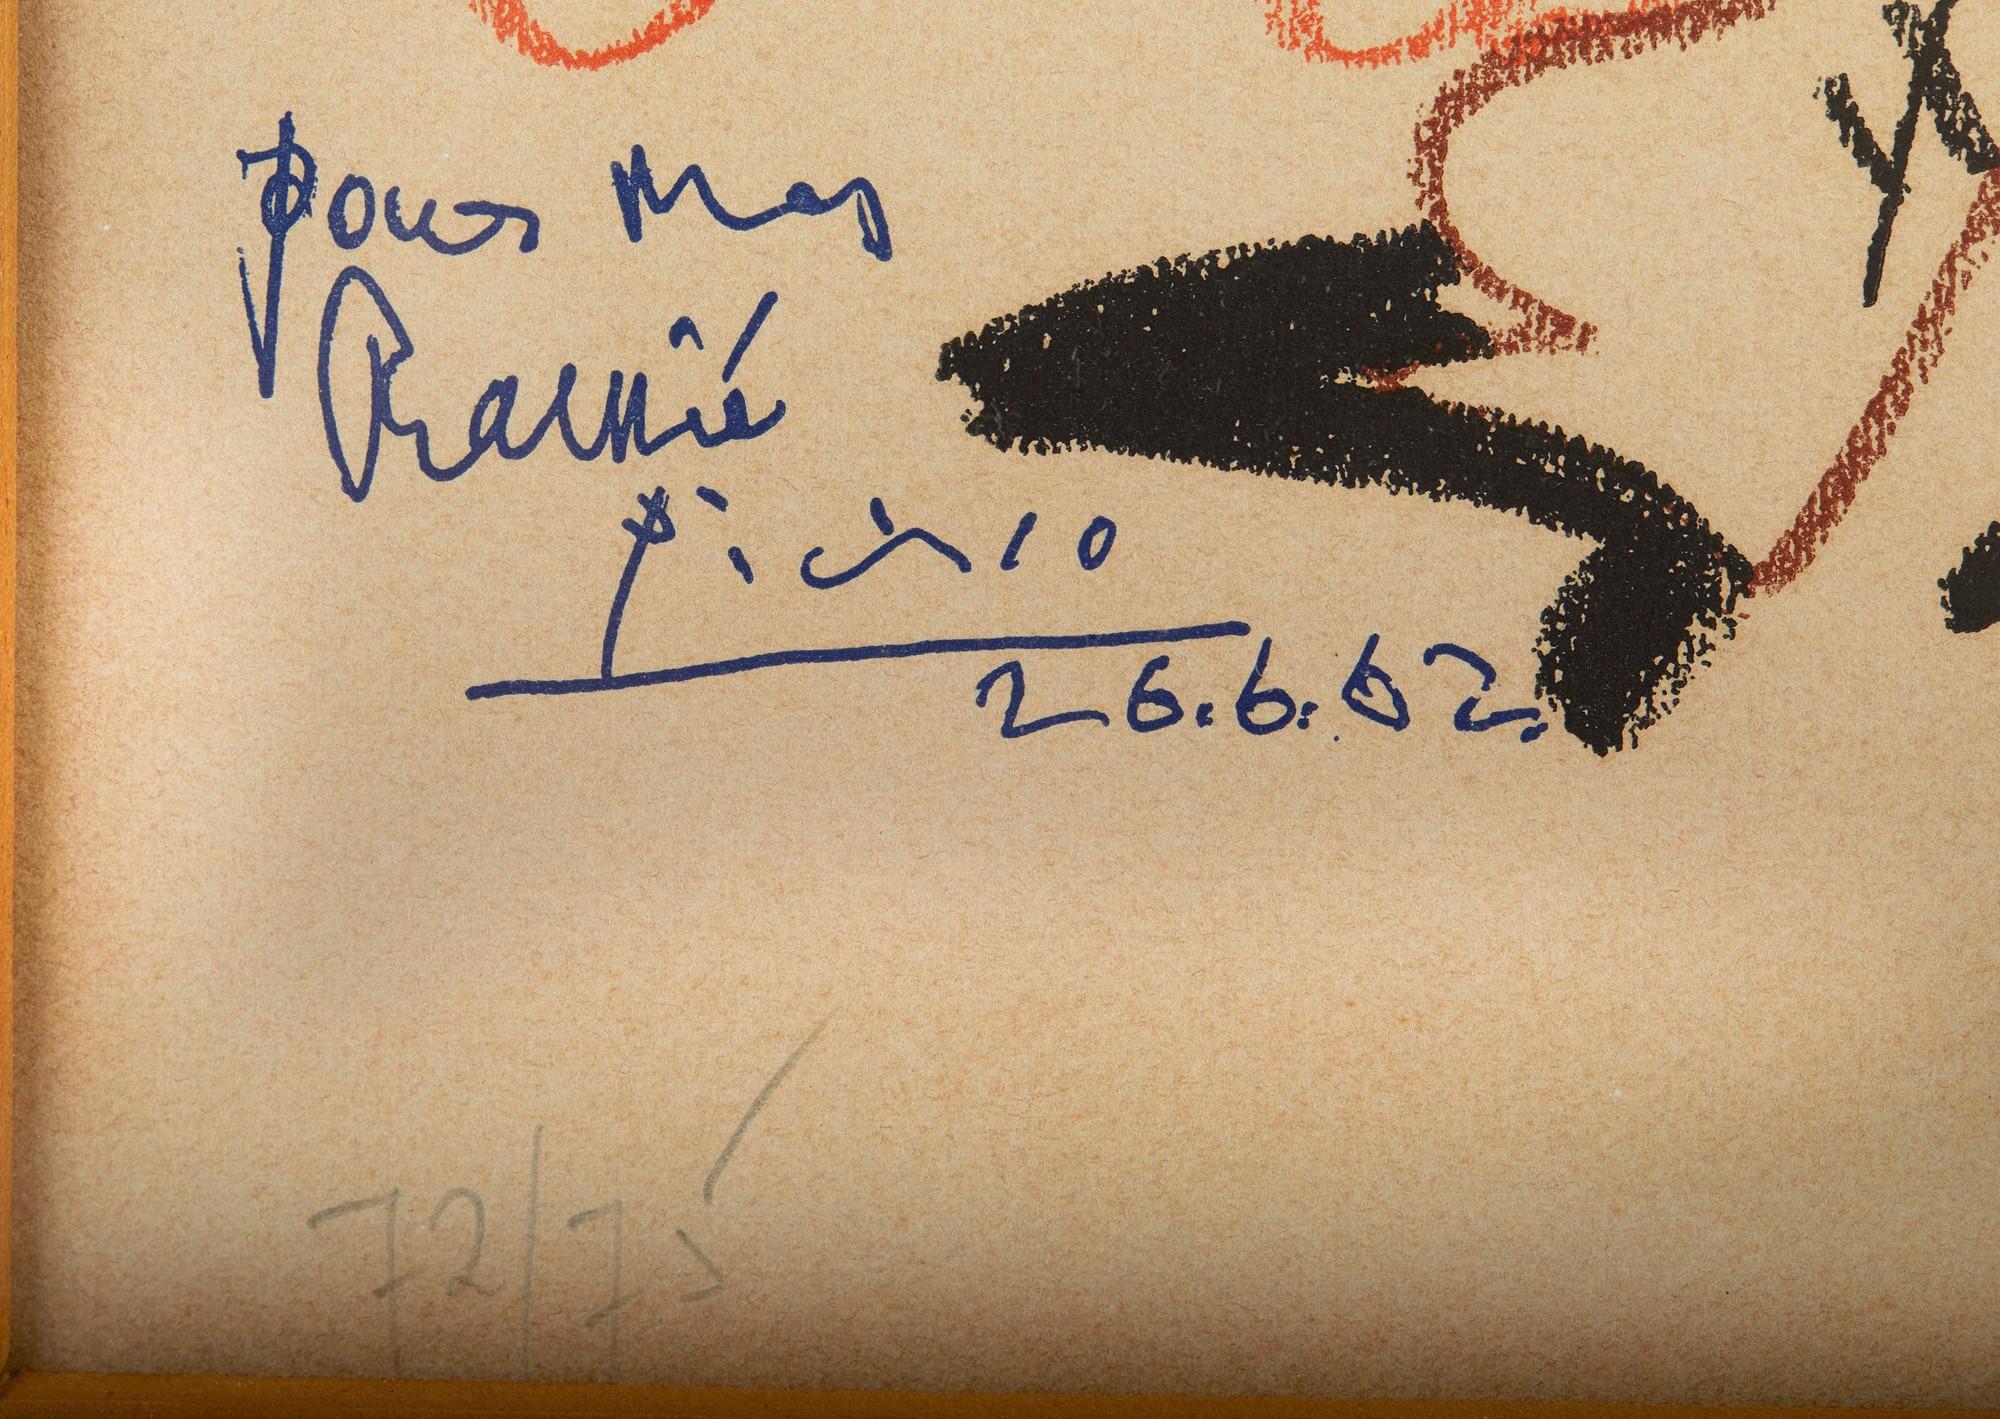 pour Mme
Ramié
Picasso
26.6.62.
72/75